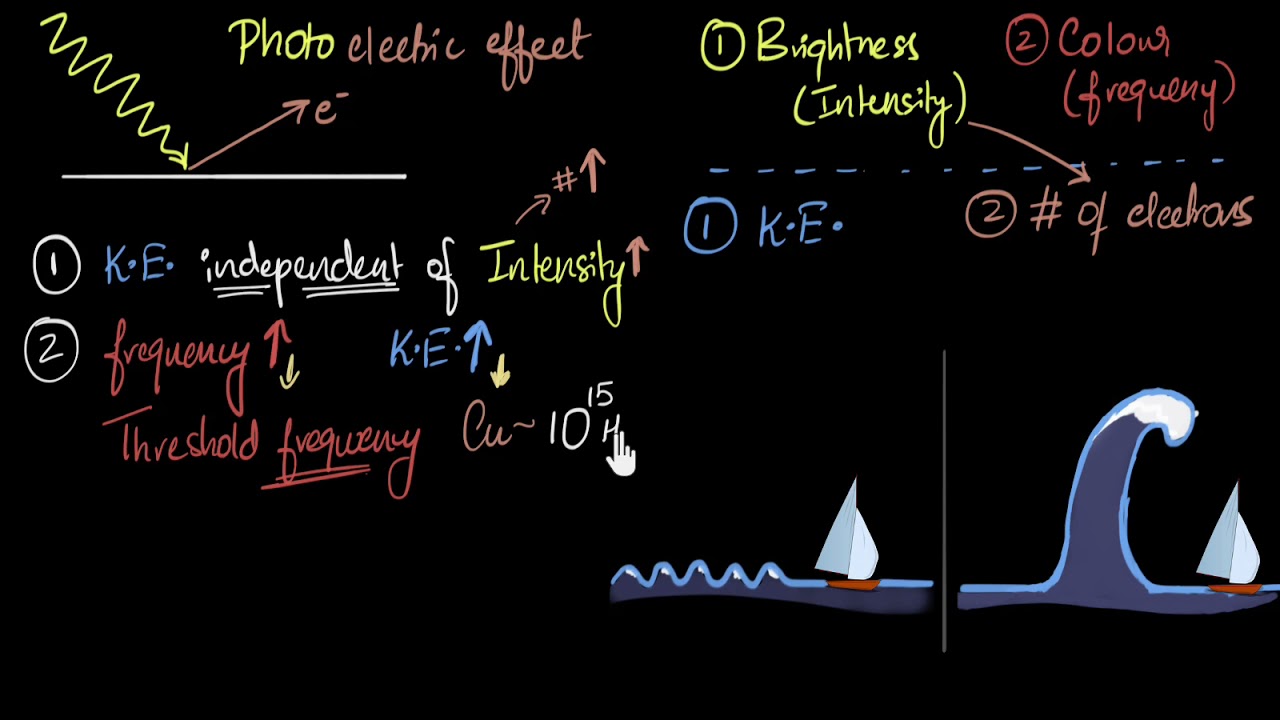 Photo electric effect
e⁻
① Brightness
(Intensity)
② Colour
(frequeny)
① K.E.
② # of electrons
#↑
① K.E. independent of Intensity↑
② frequency↑↓ K.E.↑↓
Threshold frequency Cu~ 10¹⁵ H